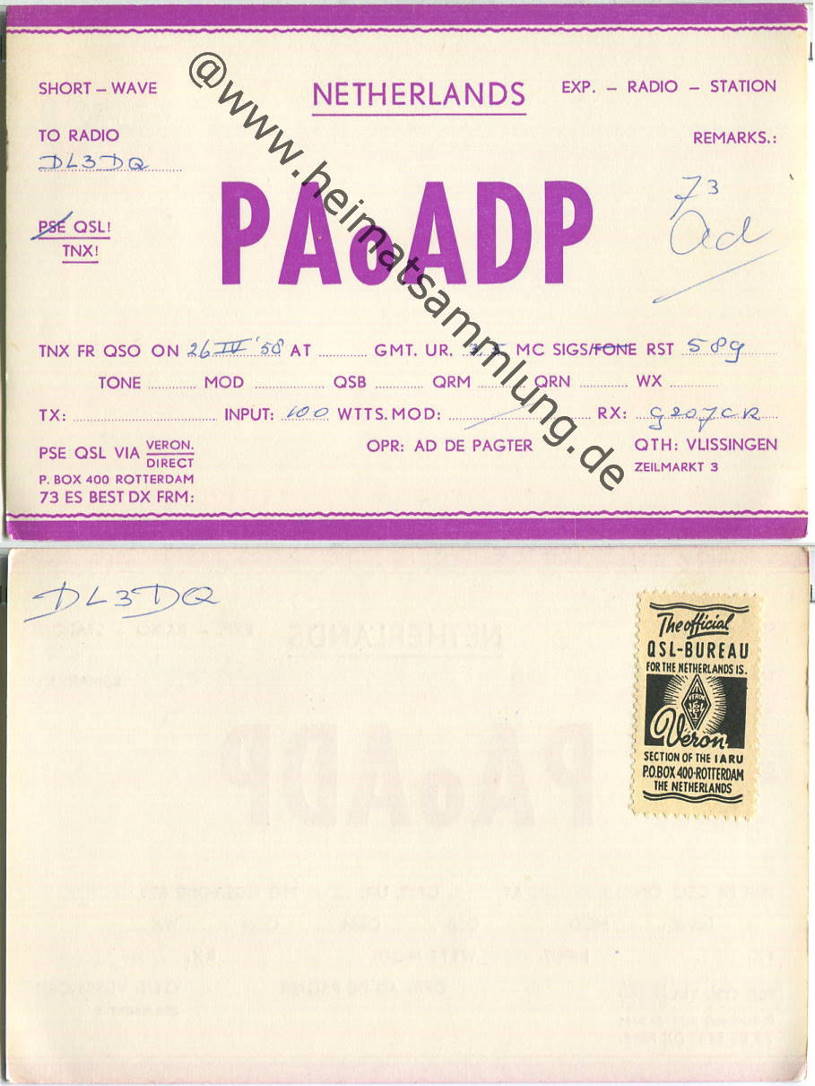 SHORT – WAVE NETHERLANDS EXP. – RADIO – STATION
TO RADIO REMARKS.:
DL3DQ
PAoADP
73
Ad
PSE QSL!
TNX!
TNX FR QSO ON 26 IV '58 AT GMT. UR. MC SIGS/FONE RST 589
TONE MOD QSB QRM QRN WX
TX: INPUT: 100 WTTS. MOD: RX:
PSE QSL VIA VERON. DIRECT
OPR: AD DE PAGTER
QTH: VLISSINGEN
ZEILMARKT 3
P. BOX 400 ROTTERDAM
73 ES BEST DX FRM:
@www.heimatsammlung.de
DL3DQ
The official
QSL-BUREAU
FOR THE NETHERLANDS IS.
VERON
Veron
SECTION OF THE IARU
P.O.BOX 400-ROTTERDAM
THE NETHERLANDS